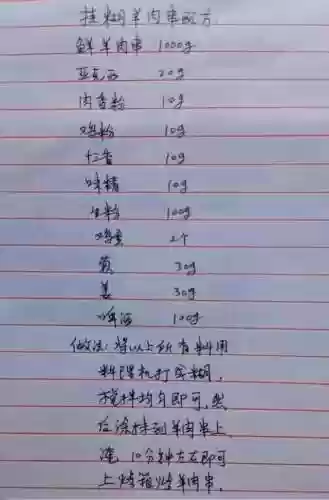 挂糊羊肉串配方
鲜羊肉串 1000g
亚克西 20g
肉香粉 10g
鸡粉 10g
十三香 10g
味精 10g
生粉 100g
鸡蛋 2个
葱 30g
姜 30g
啤酒 100g
做法:将以上所有料用
料理机打成糊,
搅拌均匀即可,然
后涂挂到羊肉串上
淹10分钟左右即可
上烤箱烤羊肉串.